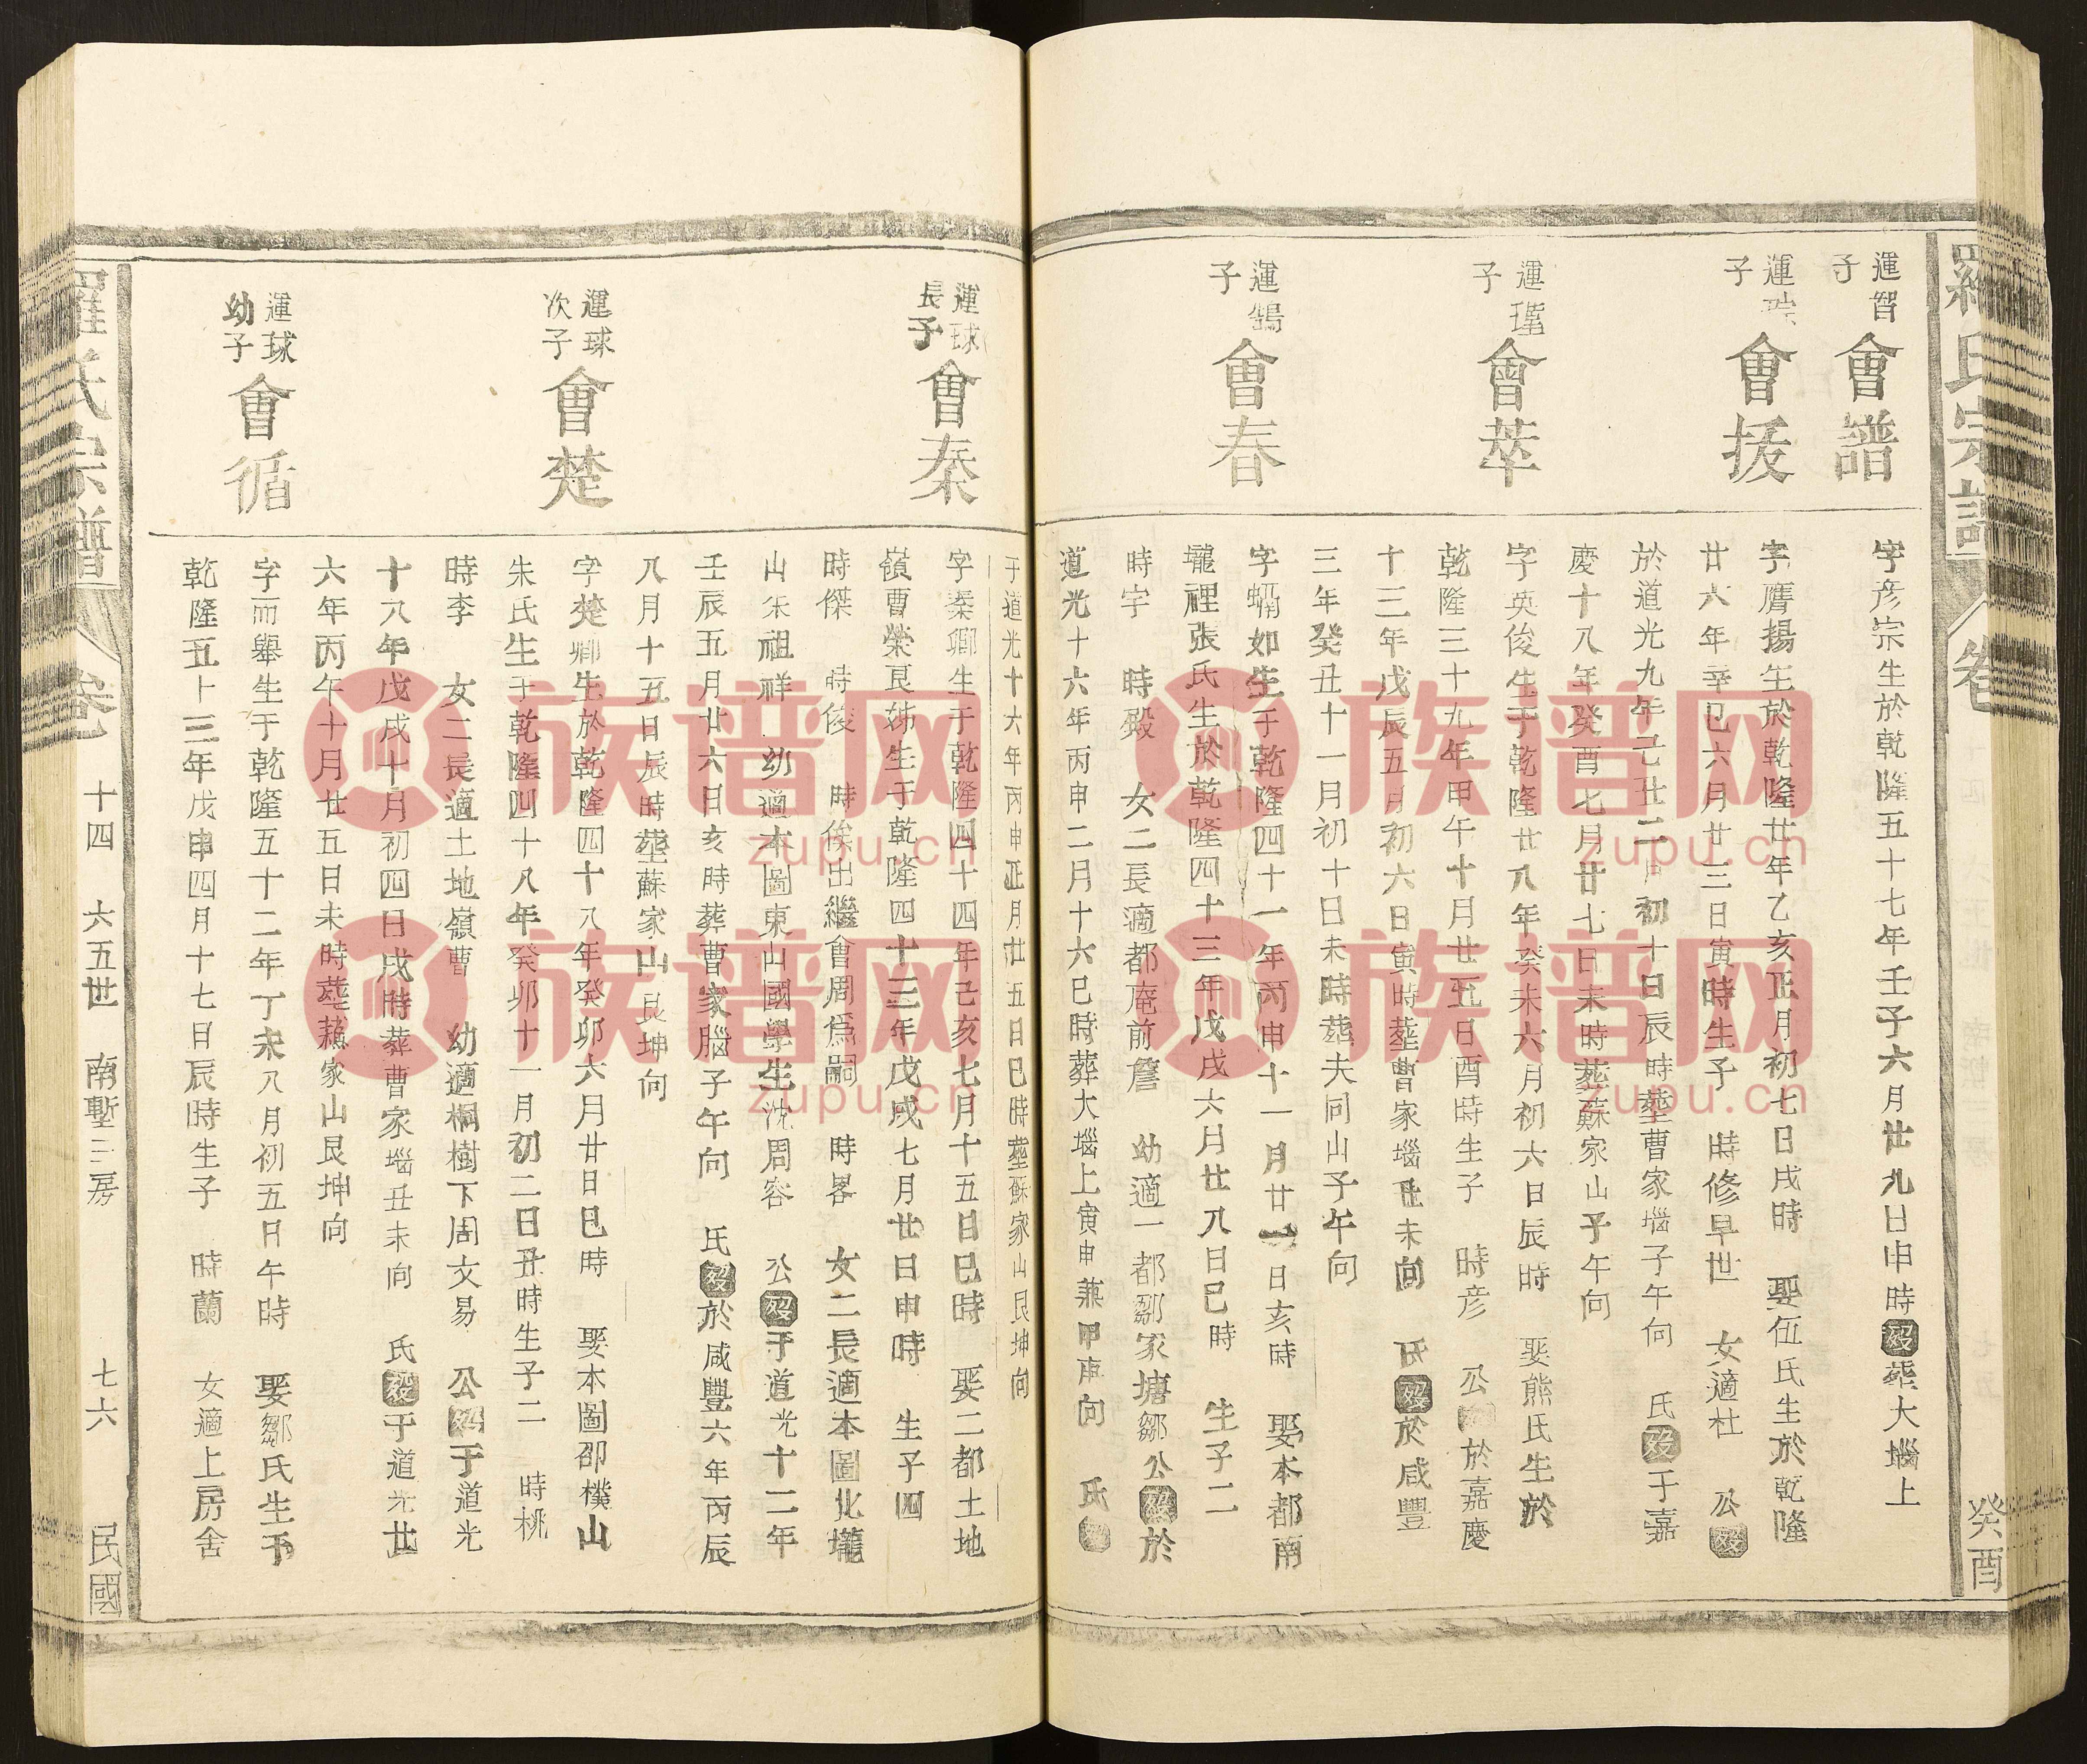 羅氏宗譜
卷
癸酉
運智
子
會譜
字彦宗生於乾隆五十七年壬子六月廿九日申時歿葬大堖上
運瑞
子
會援
字膺揚生於乾隆廿年乙亥正月初七日戌時 娶伍氏生於乾隆
廿六年辛巳六月廿三日寅時生子 時修早世 女適杜 公歿
於道光九年己丑二月初十日辰時塟曹家堖子午向 氏歿于嘉
慶十八年癸酉七月廿七日未時塟蘇家山子午向
運瑾
子
會萃
字英俊生于乾隆廿八年癸未六月初六日辰時 娶熊氏生於
乾隆三十九年甲午十月廿五日酉時生子 時彦 公歿於嘉慶
十三年戊辰五月初六日寅時塟曹家堖丑未向 氏歿於咸豐
三年癸丑十一月初十日未時塟夫同山子午向
運鵠
子
會春
字蛹如生于乾隆四十一年丙申十一月廿一日亥時 娶本都南
壠裡張氏生於乾隆四十三年戊戌六月廿八日巳時 生子二
時字 時殿 女二長適都庵前詹 幼適一都鄒家塘鄒公歿於
道光十六年丙申二月十六巳時葬大堖上寅申兼甲庚向 氏歿
于道光十六年丙申正月廿五日巳時塟蘇家山艮坤向
運球
長子
會秦
字秦卿生于乾隆四十四年己亥七月十五日巳時 娶二都土地
嶺曹榮艮姊生于乾隆四十三年戊戌七月廿日申時 生子四
時傑 時俊 時俟出繼會周為嗣 時畧 女二長適本圖北壠
山朱祖祥 幼適本圖東山國學生沈周容 公歿于道光十二年
壬辰五月廿六日亥時葬曹家腦子午向 氏歿於咸豐六年丙辰
八月十五日辰時塟蘇家山艮坤向
運球
次子
會楚
字楚卿生於乾隆四十八年癸卯六月廿日巳時 娶本圖邵樸山
朱氏生于乾隆四十八年癸卯十一月初二日丑時生子二 時桃
時李 女二長適土地嶺曹 幼適桐樹下周文易 公歿于道光
十八年戊戌十月初四日戌時葬曹家堖丑未向 氏歿于道光廿
六年丙午十月廿五日未時塟蘓家山艮坤向
運球
幼子
會循
字而舉生于乾隆五十二年丁未八月初五日午時 娶鄒氏生于
乾隆五十三年戊申四月十七日辰時生子 時蘭 女適上房舍
羅氏宗譜
卷 十四 六五世 南塹三房 七六 民國
族谱网
zupu.cn
族谱网
zupu.cn
族谱网
zupu.cn
族谱网
zupu.cn